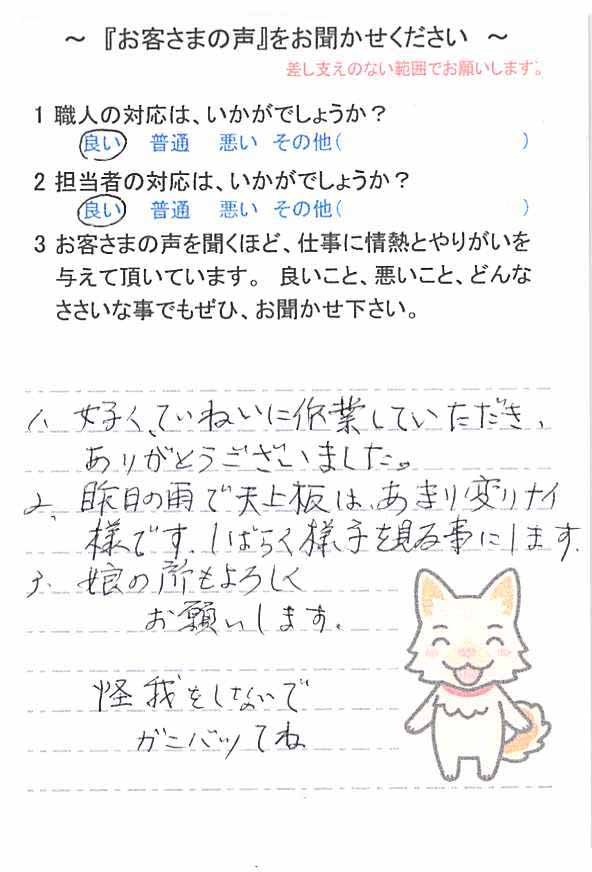 ～ 『お客さまの声』をお聞かせください ～
差し支えのない範囲でお願いします。
1 職人の対応は、いかがでしょうか？
良い 普通 悪い その他( )
2 担当者の対応は、いかがでしょうか？
良い 普通 悪い その他( )
3 お客さまの声を聞くほど、仕事に情熱とやりがいを
与えて頂いています。 良いこと、悪いこと、どんな
ささいな事でもぜひ、お聞かせ下さい。
1、好く、ていねいに作業していただき、
ありがとうございました。
2、昨日の雨で天上板は、あまり変りナイ
様です、しばらく様子を見る事にします、
3、娘の所もよろしく
お願いします、
怪我をしないで
ガンバッてね